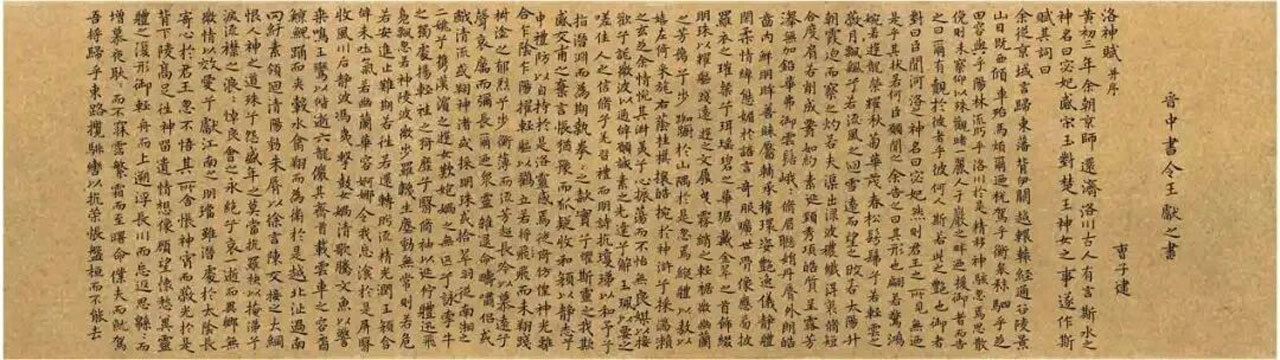 晉中書令王獻之書
曹子建
洛神賦 并序
黃初三年余朝京師還濟洛川古人有言斯水之
神名曰宓妃感宋玉對楚王神女之事遂作斯
賦其詞曰
余從京域言歸東藩背伊闕越轘轅經通谷陵景
山日既西傾車殆馬煩爾迺稅駕乎衡皋秣駟乎芝
田容與乎陽林流眄乎洛川於是精移神駭忽焉思散
俛則未察仰以殊觀睹一麗人于巖之畔迺援御者而告
之曰爾有覿於彼者乎彼何人斯若此之豔也御者
對曰臣聞河洛之神名曰宓妃然則君王之所見無迺
是乎其狀若何臣願聞之余告之曰其形也翩若驚鴻
婉若遊龍榮耀秋菊華茂春松髣髴乎若輕雲之
蔽月飄颻乎若流風之迴雪遠而望之皎若太陽升
朝霞迫而察之灼若夫渠出淥波穠纖得衷脩短
合度肩若削成腰如約素延頸秀項皓質呈露芳
澤無加鉛華弗御雲髻峨峨脩眉聯娟丹脣外朗皓
齒內鮮明眸善睞靨輔承權瓌姿豔逸儀靜體
閑柔情綽態媚於語言奇服曠世骨像應圖披
羅衣之璀粲兮珥瑤碧之華琚戴金翠之首飾綴
明珠以耀軀踐遠遊之文履曳霧綃之輕裾微幽蘭
之芳藹兮步踟躕於山隅於是忽焉縱體以敖以
嬉左倚采旄右蔭桂旗攘皓腕於神滸兮採湍瀨
之玄芝余情悅其淑美兮心振蕩而不怡無良媒以接
歡兮託微波以通辭願誠素之先達兮解玉珮以要之
嗟佳人之信脩兮羌習禮而明詩抗瓊珶以和予兮
指潛淵而為期執拳拳之款實兮懼斯靈之我欺
感交甫之棄言悵猶豫而狐疑收和顏以靜志兮
申禮防以自持於是洛靈感焉徙倚仿偟神光離
合乍陰乍陽擢輕軀以鶴立若將飛而未翔踐
椒塗之郁烈兮步蘅薄而流芳超長吟以慕遠兮
聲哀厲而彌長爾迺眾靈雜遝命疇嘯侶或
戲清流或翔神渚或採明珠或拾翠羽從南湘之
二姚兮攜漢濱之遊女歎炮媧之無匹兮詠牽牛
之獨處揚輕袿之猗靡兮翳脩袖以延佇體迅飛
鳧飄忽若神陵波微步羅襪生塵動無常則若危
若安進止難期若往若還轉眄流精光潤玉顏含
辭未吐氣若幽蘭華容婀娜令我忘飡於是屏翳
收風川后靜波馮夷擊鼓女媧清歌騰文魚以警
乘鳴玉鸞以偕逝六龍儼其齊首載雲車之容裔
鯨鯢踴而夾轂水禽翔而為衛於是越北沚過南
岡紆素領迴清陽動朱脣以徐言陳交接之大綱
恨人神之道殊兮怨盛年之莫當抗羅袂以掩涕兮
淚流襟之浪浪悼良會之永絕兮哀一逝而異鄉無
微情以效愛兮獻江南之明璫雖潛處於太陰長
寄心於君王忽不悟其所舍悵神宵而蔽光於是
背下陵高足往神留遺情想像顧望懷愁冀靈
體之復形御輕舟而上遡浮長川而忘返思緜緜而
增慕夜耿耿而不寐霑繁霜而至曙命僕夫而就駕
吾將歸乎東路攬騑轡以抗策悵盤桓而不能去